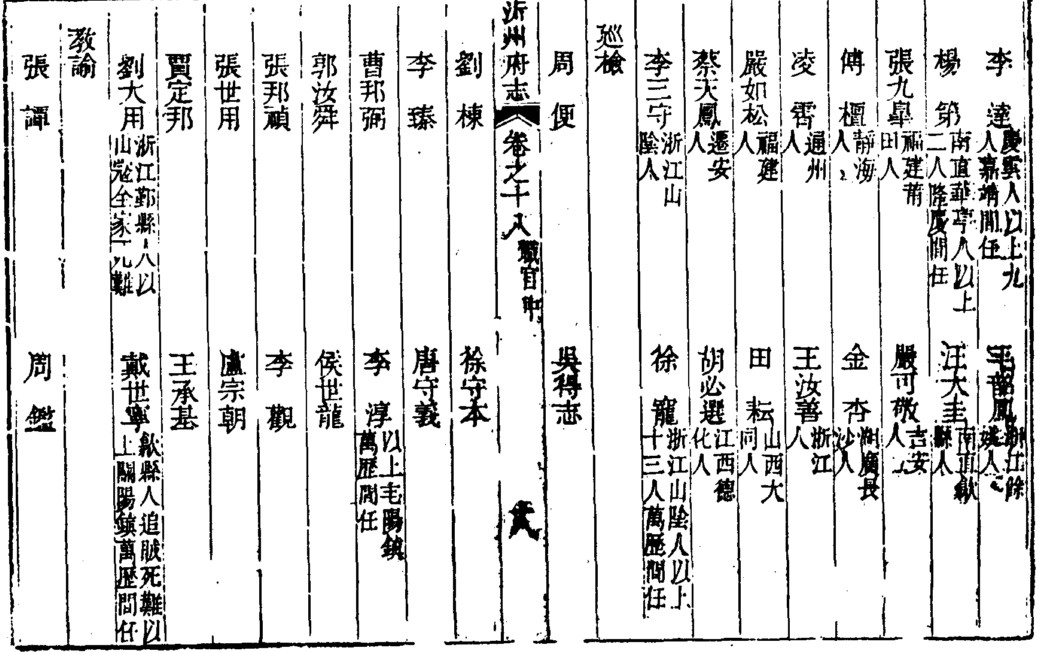 李達 慶雲人以上九人嘉靖間任 毛鳳 浙江餘姚人
楊第 南直華亭人以上二人隆慶間任 汪大圭 南直歙縣人
張九皐 福建莆田人 嚴可敬 吉安人
傅檀 靜海人 金杏 湖廣長沙人
凌霄 通州人 王汝善 浙江人
嚴如松 福建人 田耘 山西大同人
蔡天鳳 遷安人 胡必選 江西德化人
李三守 浙江山陰人 徐寵 浙江山陰人以上十三人萬歷間任
巡檢
周便 吳得志
沂州府志 卷之十八 職官中
劉棟 徐守本
李臻 唐守義
曹邦弼 李淳 以上毛陽鎮萬歷間任
郭汝舜 侯世龍
張邦禎 李觀
張世用 盧宗朝
賈定邦 王承基
劉大用 浙江鄞縣人以山寇全家死難 戴世寧 歙縣人追賊死難以上關陽鎮萬歷間任
教諭
張譚 周鑑